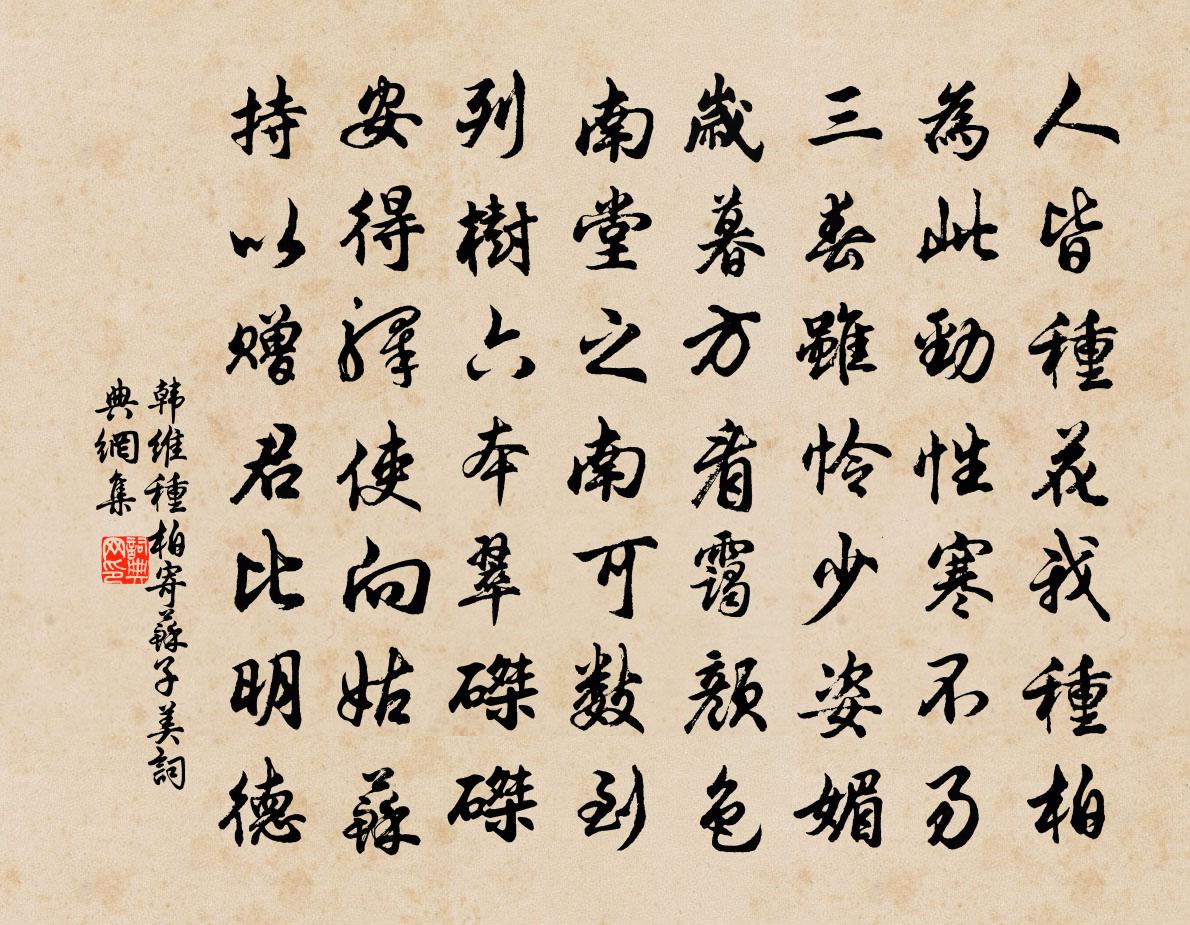 人皆種花我種柏
為此勁性寒不易
三春雖怜少姿媚
歲暮方看靄顏色
南堂之南可數到
列樹六本翠磔磔
安得驛使向姑蘇
持以贈君比明德
韩維種柏寄蘇子美詞
典網集
詞典
网印